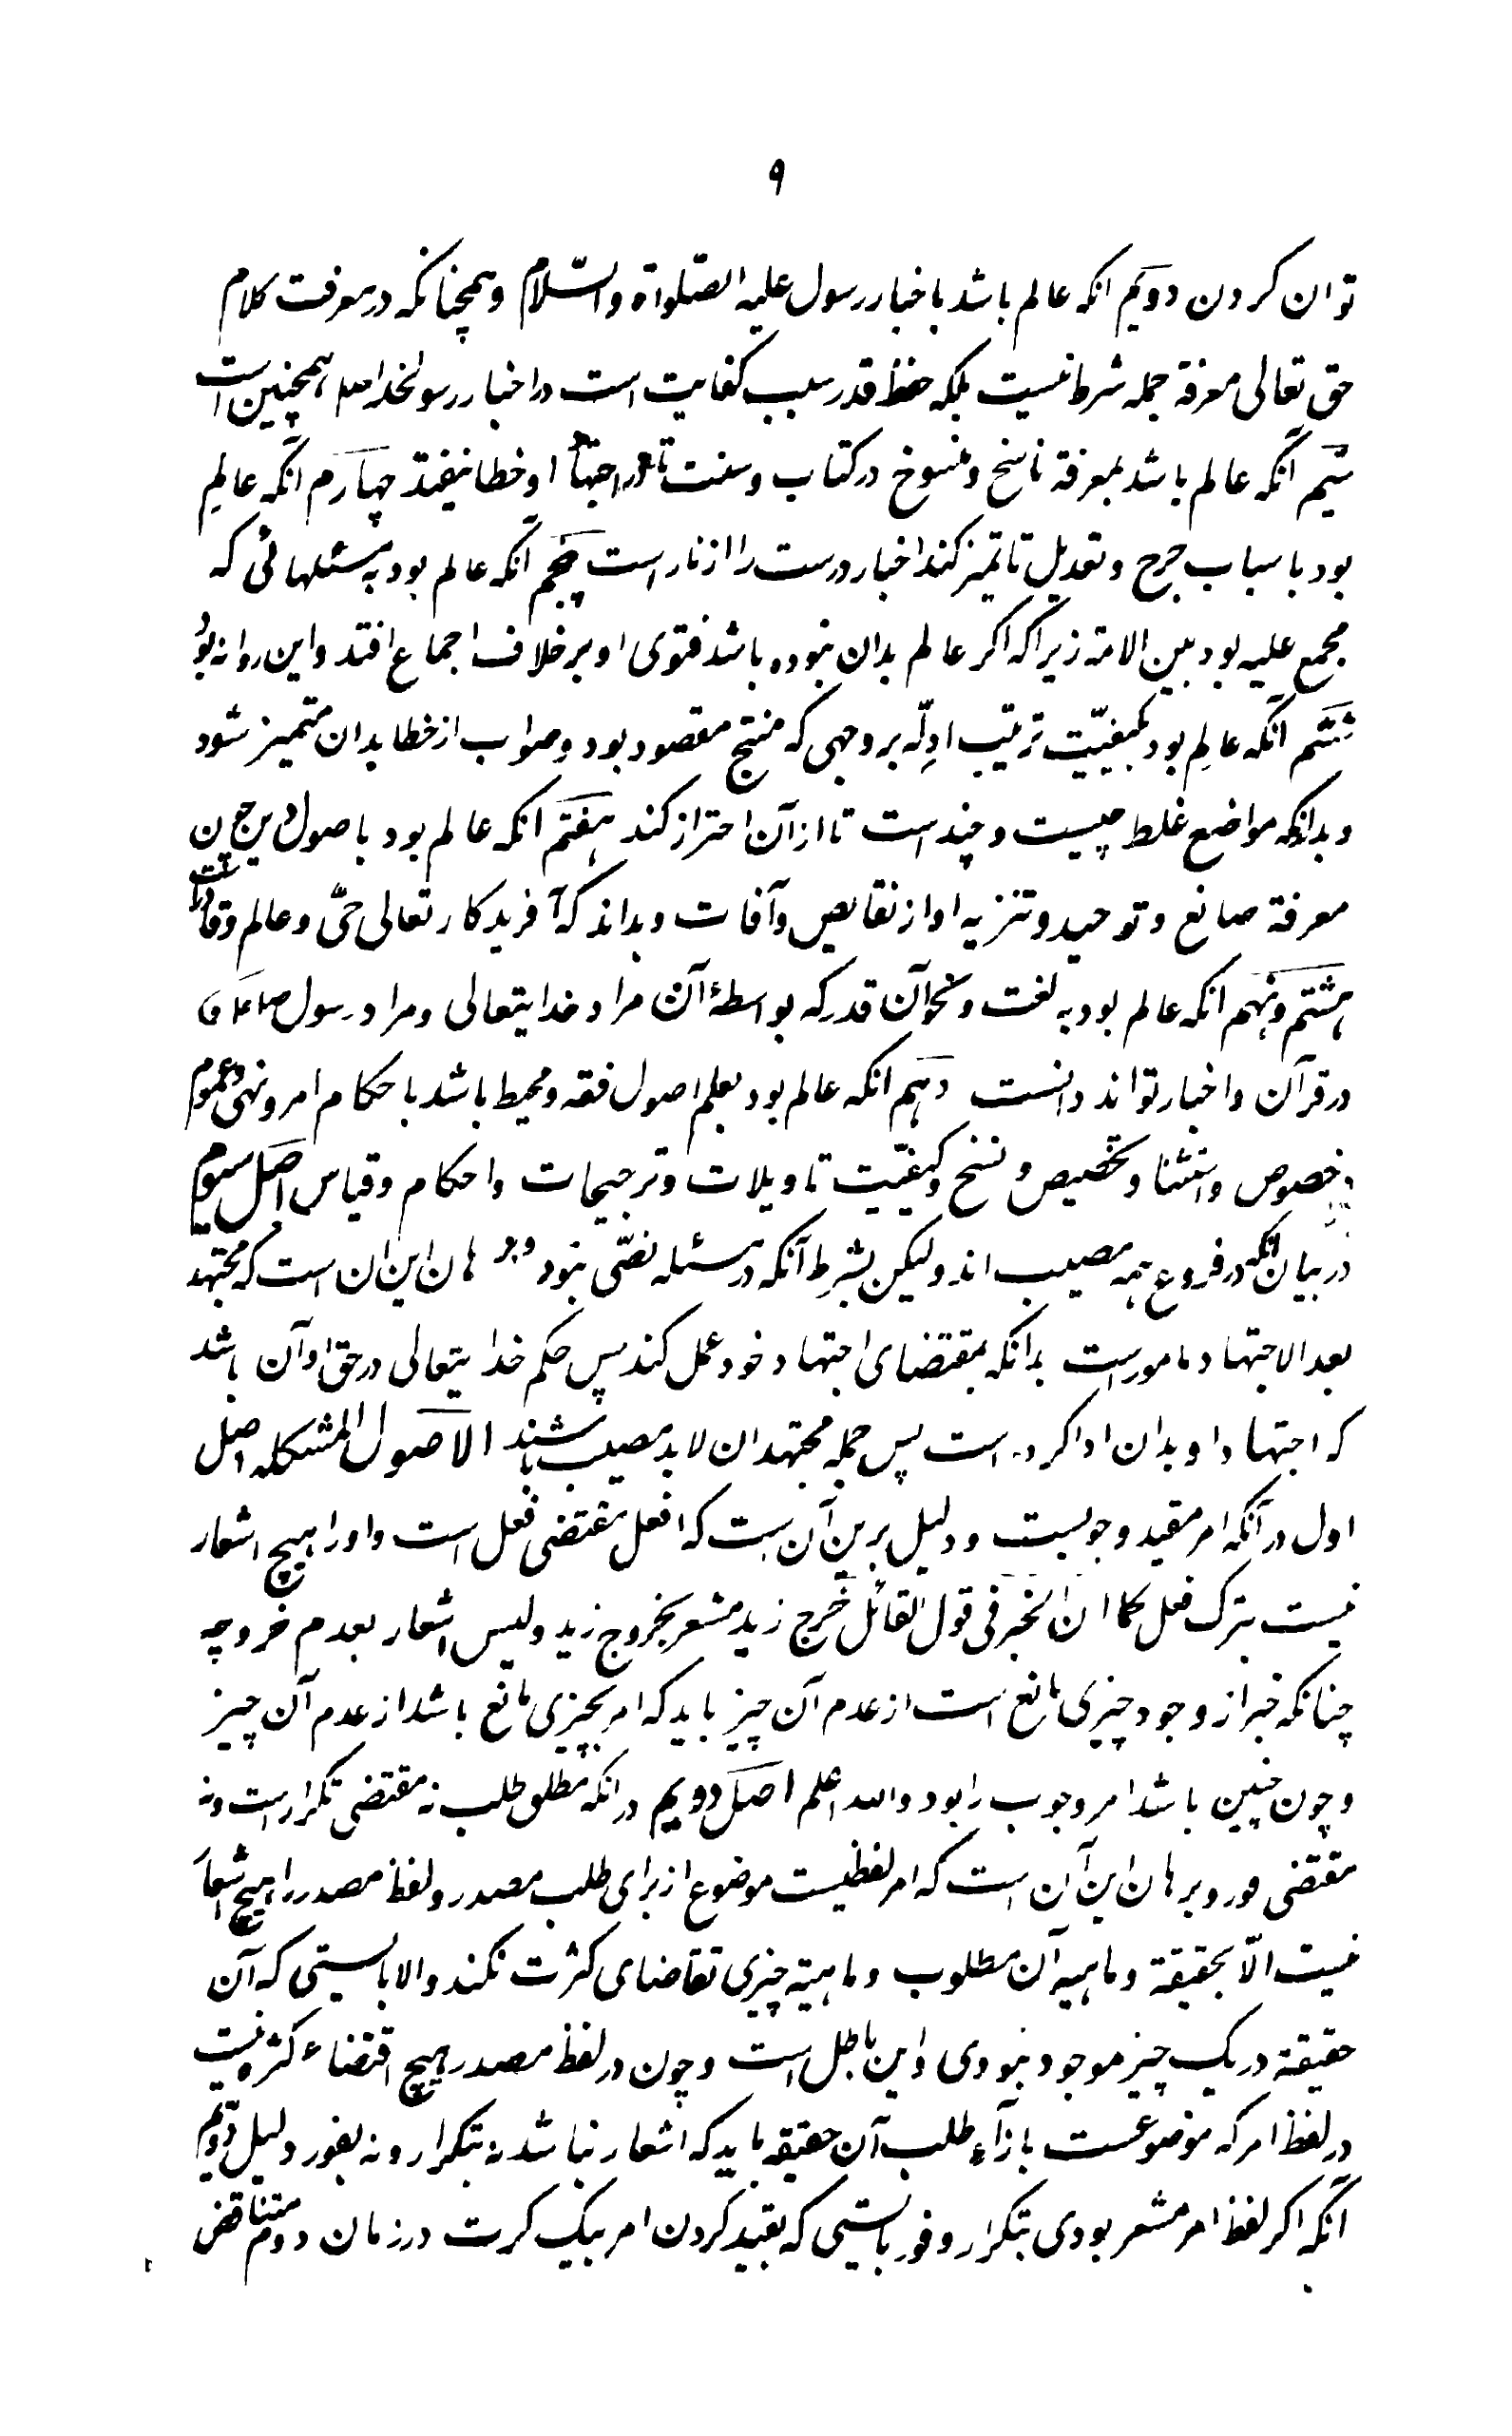 ۹
توان کردن دویم انکه عالم باشد باخبار رسول علیه الصّلواة والسّلام و همچنانکه در معرفت کلام
حق تعالی معرفة جمله شرط نیست بلکه حفظ قدر سبب کفایت است در اخبار رسولخدا صلعم همچنین است
سیّم آنکه عالم باشد بمعرفة ناسخ و منسوخ در کتاب و سنت تا در اجتهاد او خطا نیفتد چهارم انکه عالم
بود باسباب جرح و تعدیل تا تمیز کند اخبار درست را از ناراست پنجم آنکه عالم بود به مسئلهائی که
مجمع علیه بود بین الامة زیرا که اکر عالم بدان نبوده باشد فتوی او بر خلاف اجماع افتد و این روا نبود
ششم انکه عالم بود بکیفیّت ترتیب ادلّه بر وجهی که منتج مقصود بود و صواب از خطا بدان متمیز شود
و بداند که مواضع غلط چیست و چند است تا از آن احتراز کند هفتم انکه عالم بود باصول دین چون
معرفة صانع و توحید و تنزیه او از نقایص و آفات و بداند که آفریدکار تعالی حیّ و عالم و قادر است
هشتم و نهم انکه عالم بود به لغت و نحو آن قدر که بواسطهٔ آن مراد خدایتعالی و مراد رسول
در قرآن و اخبار تواند دانست دهم انکه عالم بود بعلم اصول فقه و محیط باشد باحکام امر و نهی و عموم
و خصوص و استثنا و تخصیص و نسخ و کیفیّت تاویلات و ترجیحات و احکام و قیاس اصل سیوم
در بیان انکه در فروع همه مصیب اند ولیکن بشرط آنکه در مسئله نصّی نبود و برهان این ان است که مجتهد
بعد الاجتهاد مامور است بدانکه بمقتضای اجتهاد خود عمل کند پس حکم خدایتعالی در حق او آن باشد
که اجتهاد او بدان ادا کرده است پس جمله مجتهدان لابد مصیب باشند الاصول المشکله اصل
اول در آنکه امر مقید وجوبست و دلیل برین آن است که افعل مقتضی فعل است و او را هیچ اشعار
نیست بترک فعل کما ان الخبر فی قول القائل خرج زید مشعر بخروج زید و لیس اشعار بعدم خروجه
چنانکه خبر از وجود چیزی مانع است از عدم آن چیز باید که امر بچیزی مانع باشد از عدم آن چیز
و چون چنین باشد امر وجوب را بود والله اعلم اصل دویم در انکه مطلق طلب نه مقتضی تکرار است و نه
مقتضی فور و برهان این آن است که امر لفظیست موضوع از برای طلب مصدر و لفظ مصدر را هیچ اشعار
نیست الّا بحقیقة و ماهیه آن مطلوب و ماهیة چیزی تقاضای کثرت نکند والا بایستی که آن
حقیقة در یک چیز موجود نبودی و این باطل است و چون در لفظ مصدر هیچ اقتضاء کثرة نیست
در لفظ امر که موضوعست بازآء طلب آن حقیقه باید که اشعار نباشد نه بتکرار و نه بفور دلیل دویم
آنکه اکر لفظ امر مشعر بودی بتکرار و فور بایستی که بقید کردن امر بیک کرت در زمان دوم متناقض